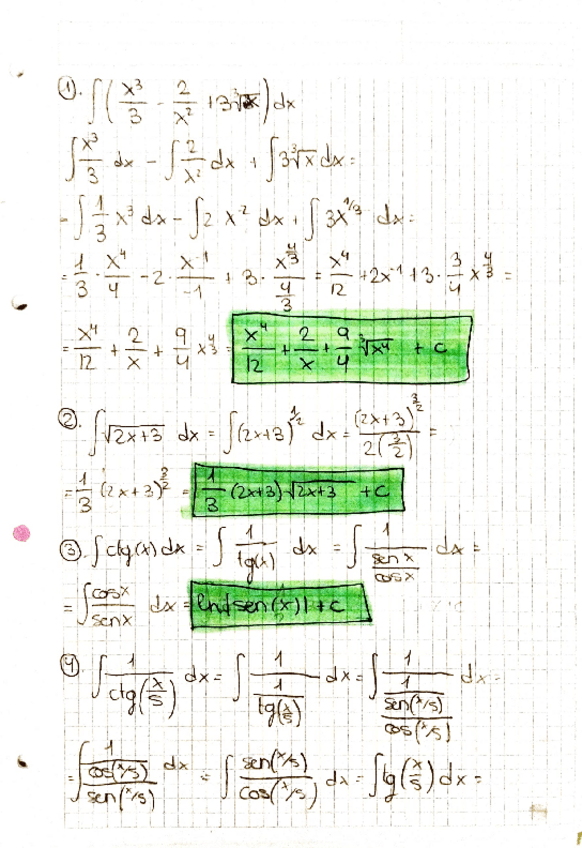 ①. ∫(x³/3 - 2/x² + 3∛x)dx
∫x³/3 dx - ∫2/x² dx + ∫3∛x dx =
= ∫1/3 x³ dx - ∫2 x⁻² dx + ∫3x^(1/3) dx =
= 1/3 · x⁴/4 - 2 · x⁻¹/-1 + 3 · x^(4/3)/(4/3) = x⁴/12 + 2x⁻¹ + 3 · 3/4 x^(4/3) =
= x⁴/12 + 2/x + 9/4 x^(4/3) = x⁴/12 + 2/x + 9/4 ∛x⁴ + c
②. ∫√(2x+3) dx = ∫(2x+3)^(1/2) dx = (2x+3)^(3/2)/(2(3/2)) =
= 1/3 (2x+3)^(3/2) = 1/3 (2x+3)√(2x+3) + c
③. ∫ctg(x)dx = ∫1/tg(x) dx = ∫1/(sen x/cos x) dx =
= ∫cosx/senx dx = ln|sen(x)| + c
④. ∫1/ctg(x/5) dx = ∫1/(1/tg(x/5)) dx = ∫1/(1/(sen(x/5)/cos(x/5))) dx =
= ∫1/(cos(x/5)/sen(x/5)) dx = ∫sen(x/5)/cos(x/5) dx = ∫tg(x/5)dx =